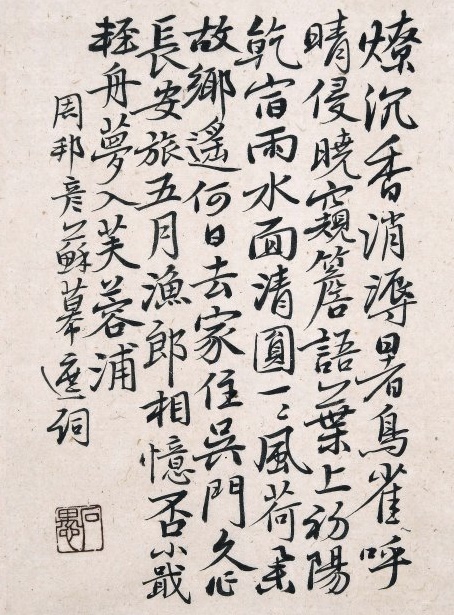 燎沉香消溽暑鳥雀呼
晴侵曉窺簷語葉上初陽
乾宿雨水面清圓一〻風荷舉
故鄉遙何日去家住吳門久作
長安旅五月漁郎相憶否小戢
輕舟夢入芙蓉浦
周邦彥蘇幕遮詞
石愚